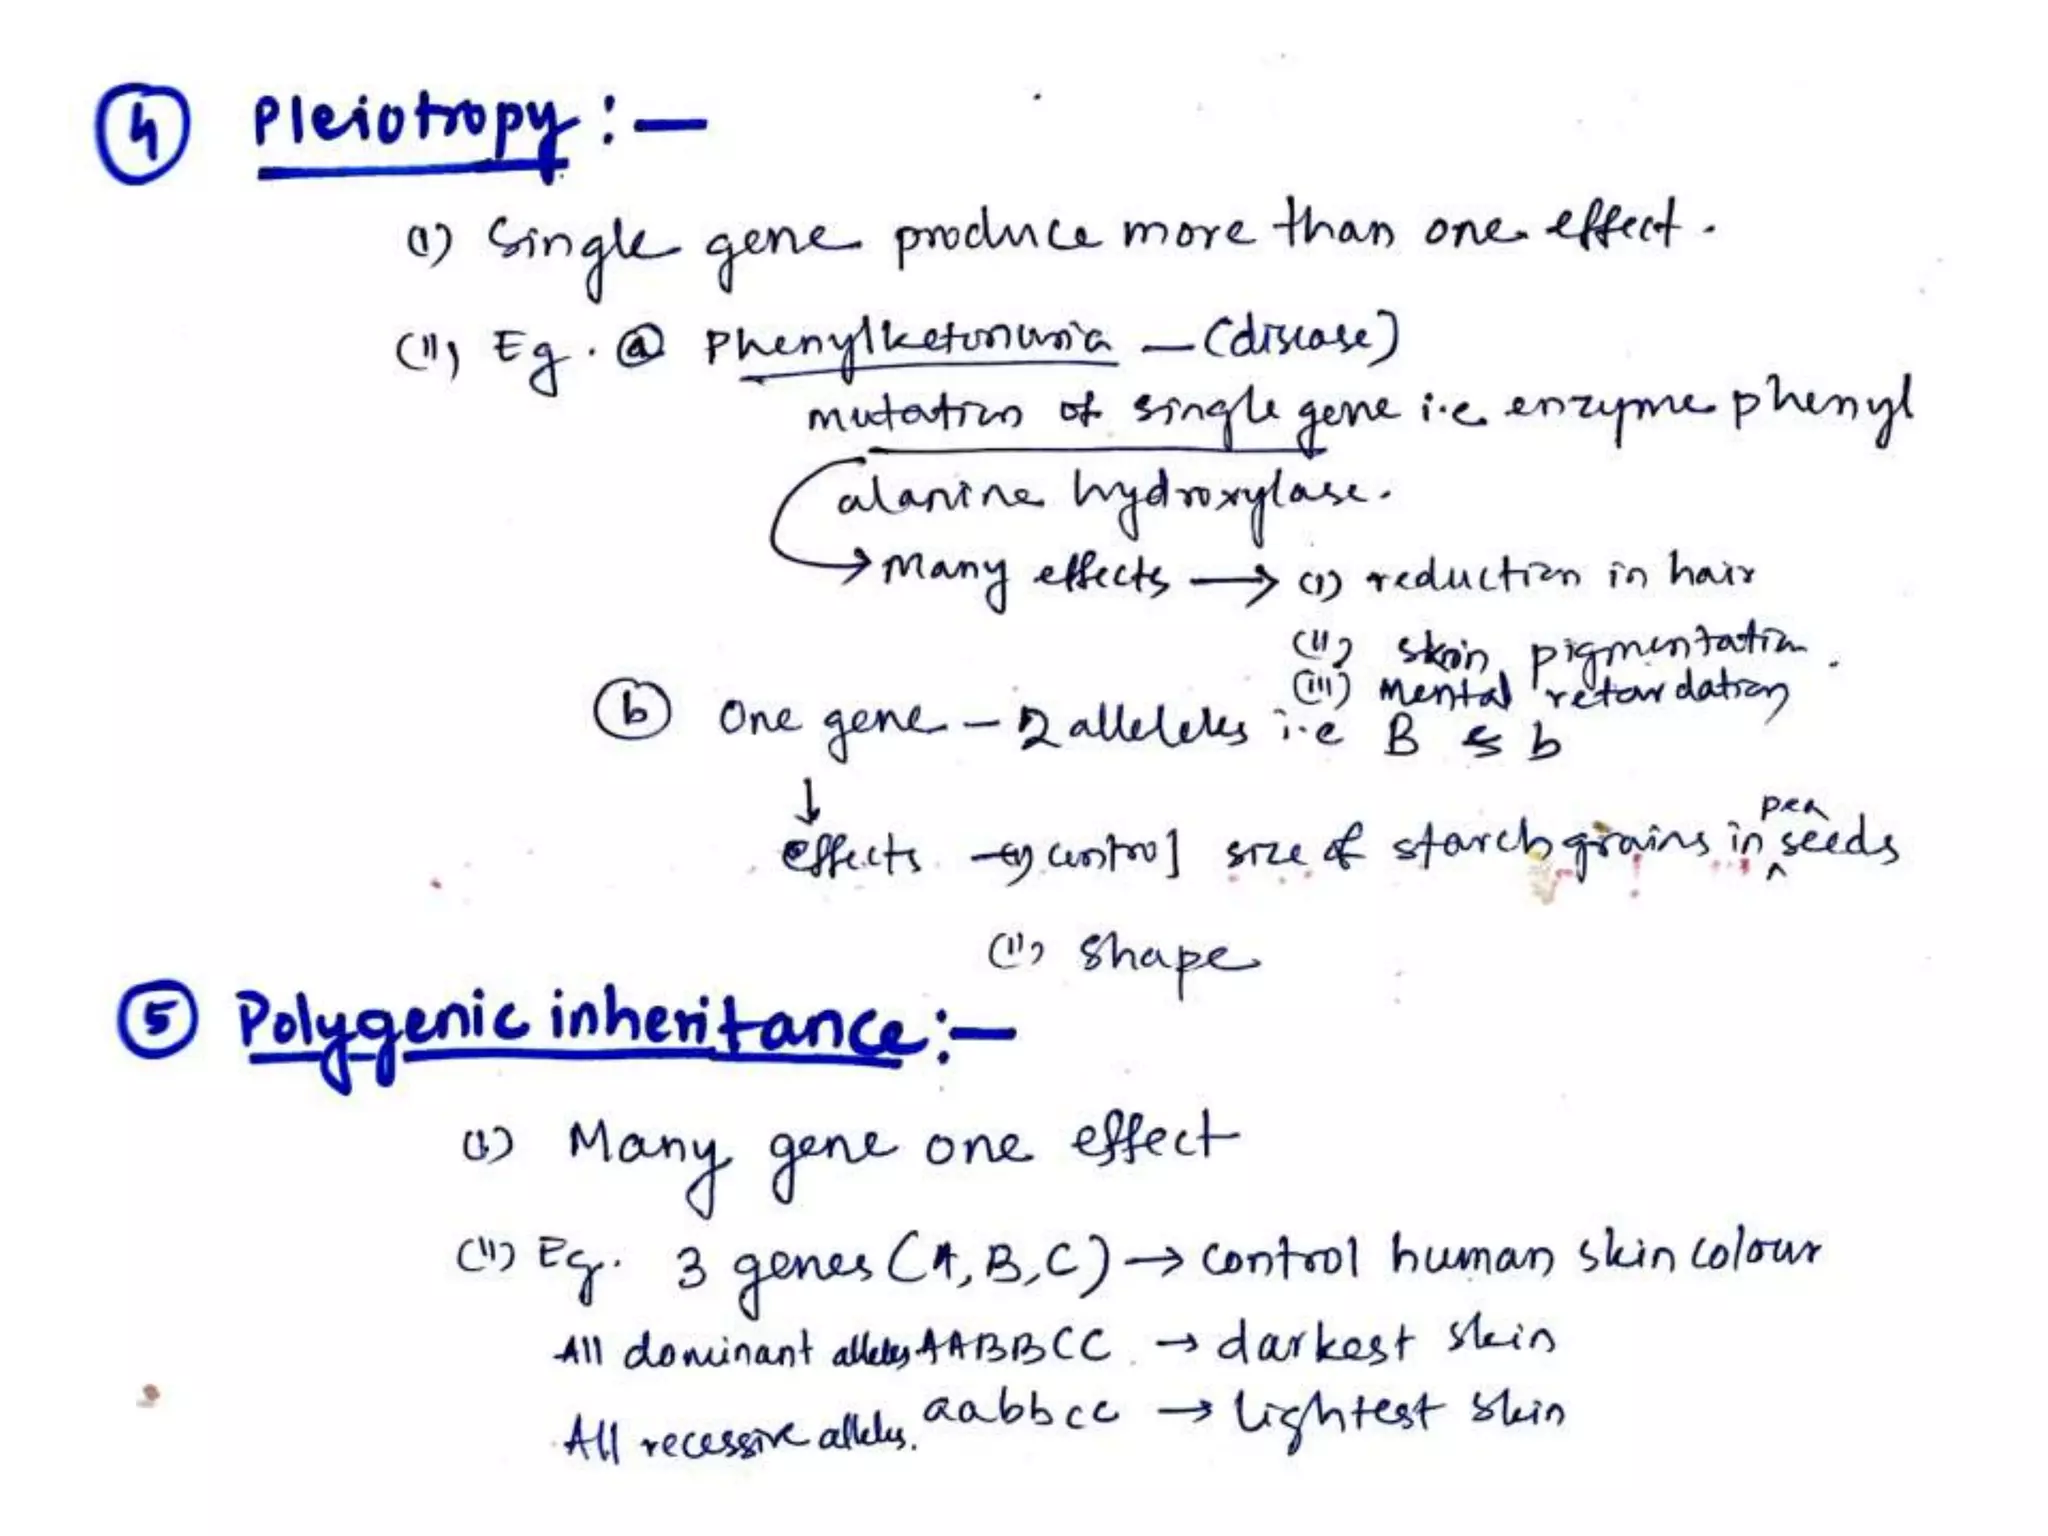 ④ Pleiotropy:—
(i) Single gene produce more than one effect.
(ii) Eg. ⓐ Phenylketonuria — (disease)
mutation of single gene i.e enzyme phenyl
alanine hydroxylase.
→ Many effects → (i) reduction in hair
(ii) skin pigmentation.
(iii) Mental retardation
ⓑ One gene – 2 alleles i.e B & b
↓
effects → (i) control size of starch grains in pea seeds
(ii) shape
⑤ Polygenic inheritance:—
(i) Many gene one effect
(ii) Eg. 3 genes (A, B, C) → control human skin colour
All dominant alleles AABBCC → darkest skin
All recessive alleles. aabbcc → lightest skin